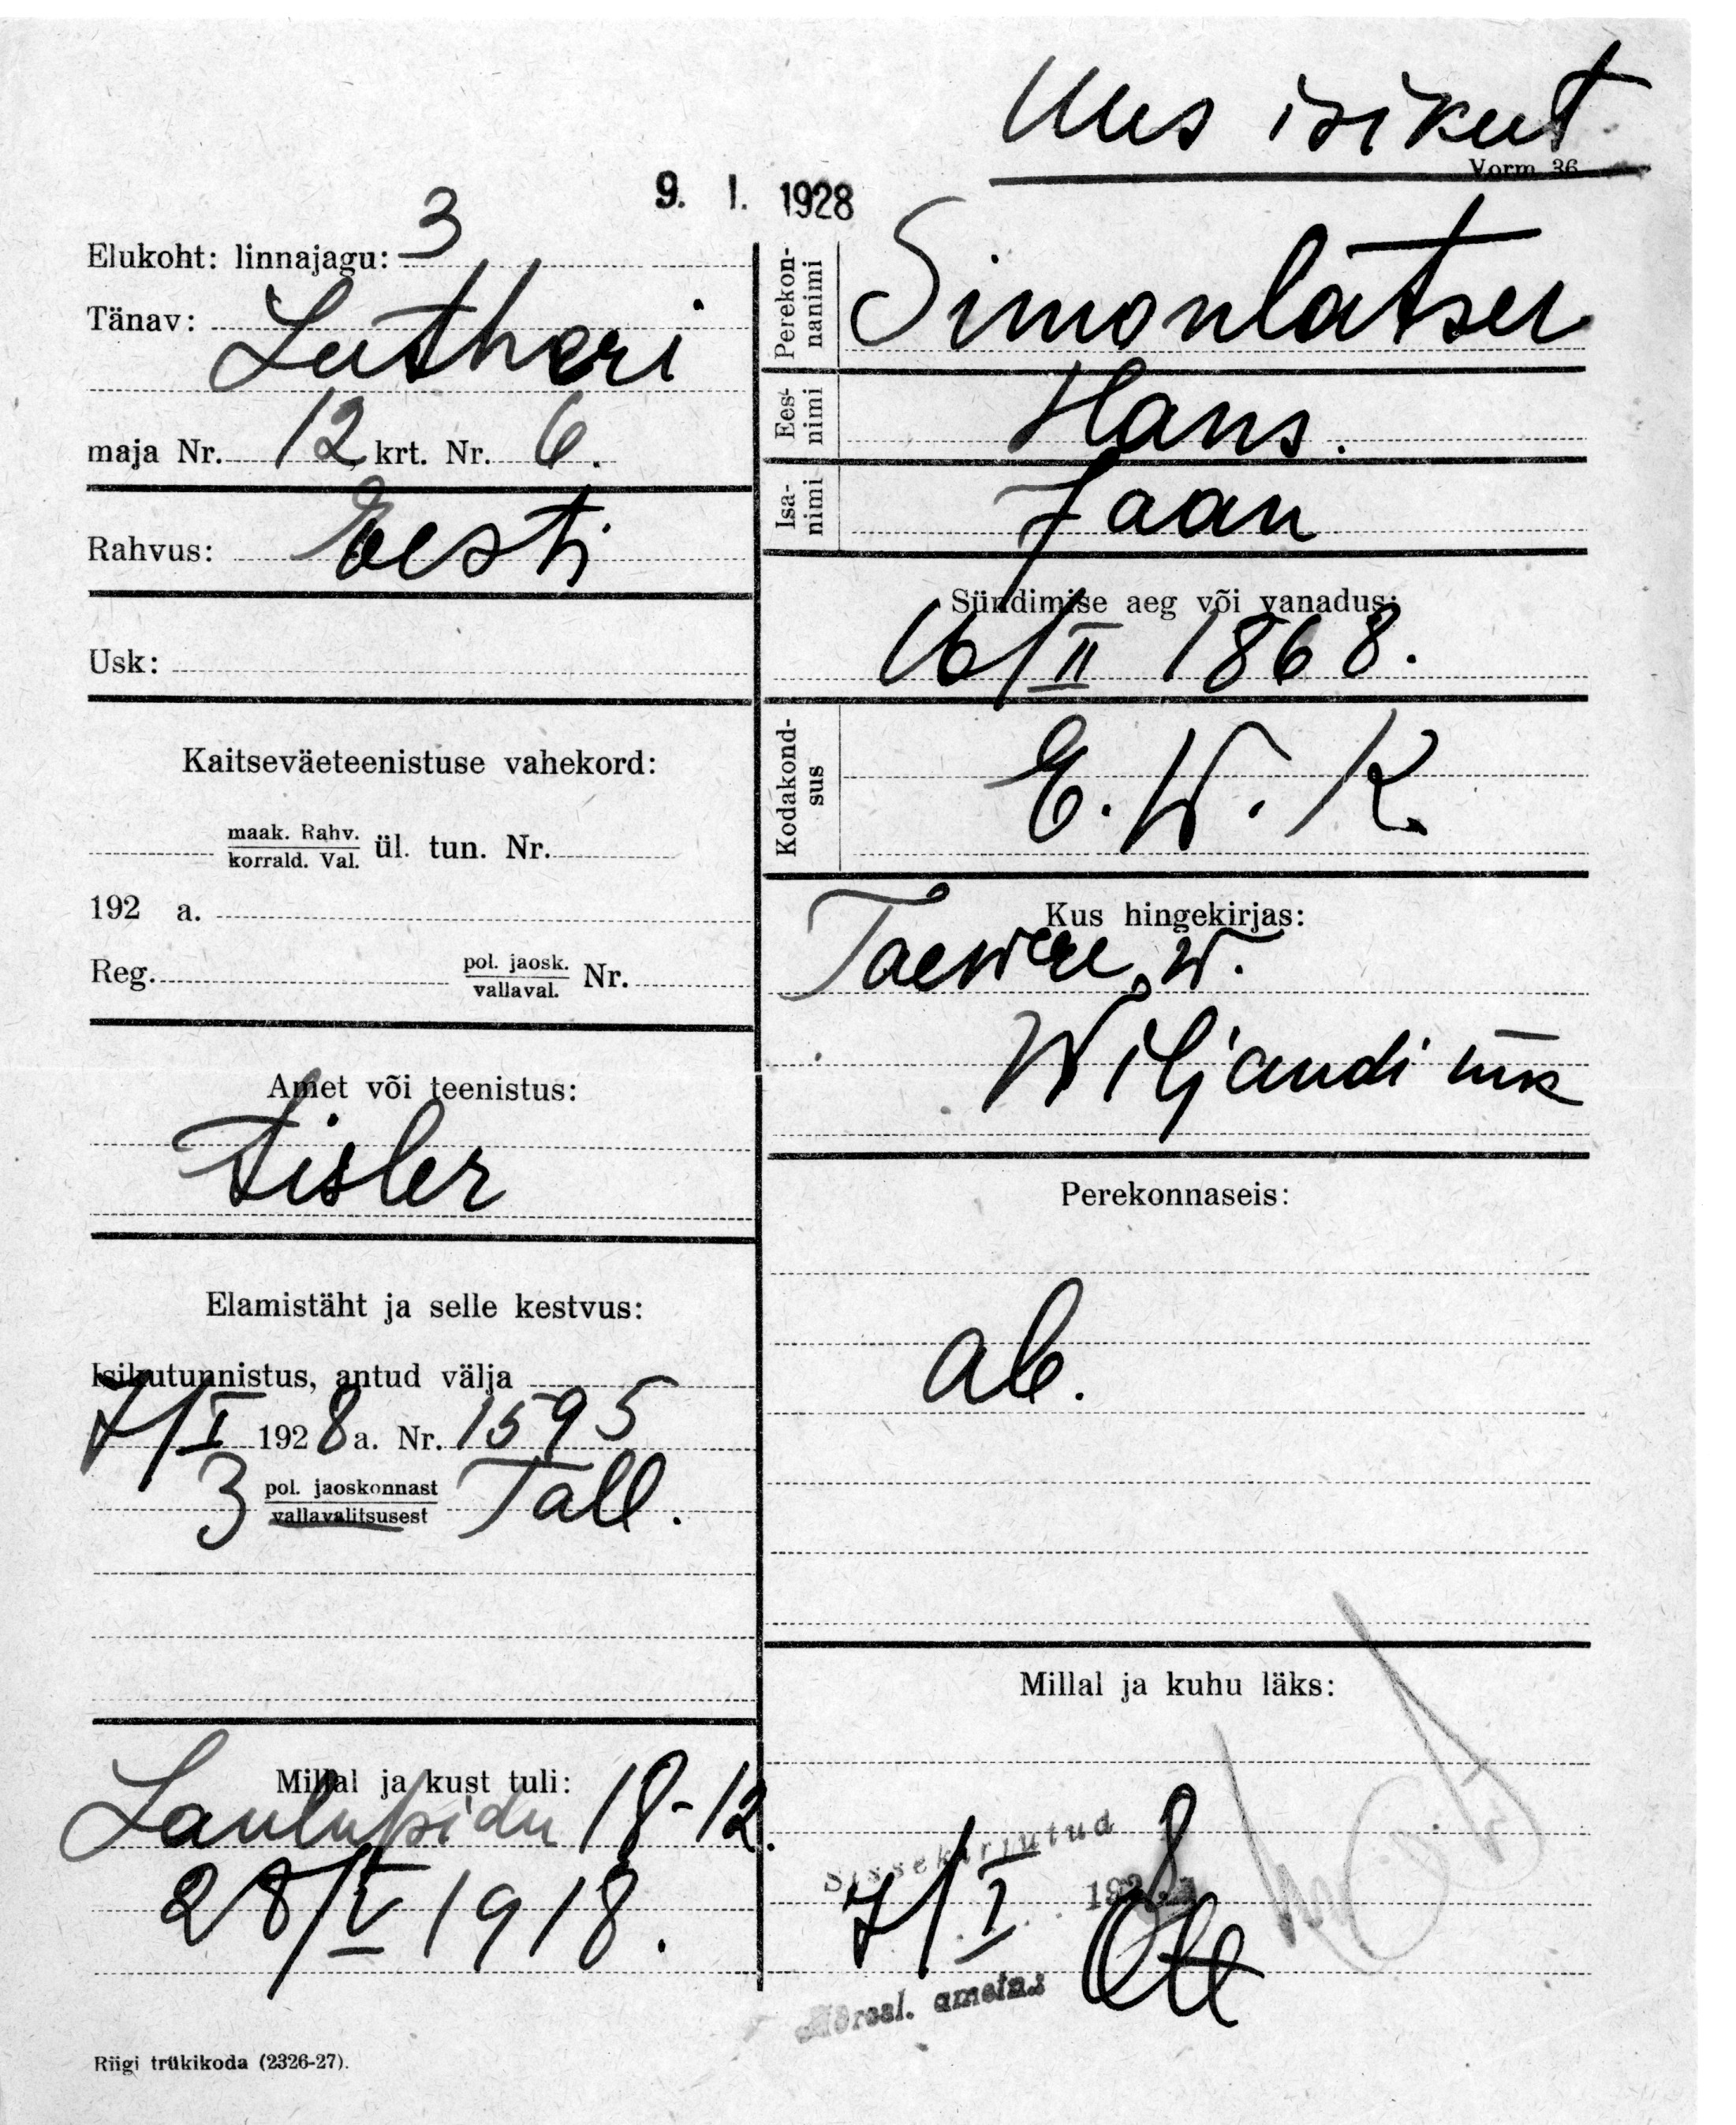 Uus isikut
Vorm 36
9. I. 1928
Elukoht: linnajagu: 3
Tänav: Lutheri
maja Nr. 12 krt. Nr. 6.
Rahvus: Eesti
Usk:
Kaitseväeteenistuse vahekord:
maak. Rahv.
korrald. Val. ül. tun. Nr.
192 a.
Reg. pol. jaosk.
vallaval. Nr.
Amet või teenistus:
Tisler
Elamistäht ja selle kestvus:
Isikutunnistus, antud välja
7/I 1928 a. Nr. 1595
3 pol. jaoskonnast Tall.
vallavalitsusest
Millal ja kust tuli:
Laulupidu 18-12.
28/V 1918.
Perekonnanimi
Simonlatser
Eesnimi
Hans.
Isanimi
Jaan
Sündimise aeg või vanadus:
16/II 1868.
Kodakondsus
E. W. K.
Kus hingekirjas:
Taewere w.
Wiljandi mk
Perekonnaseis:
ab.
Millal ja kuhu läks:
Sissekirjutud
7/I 1928
ametnik
Riigi trükikoda (2326-27).